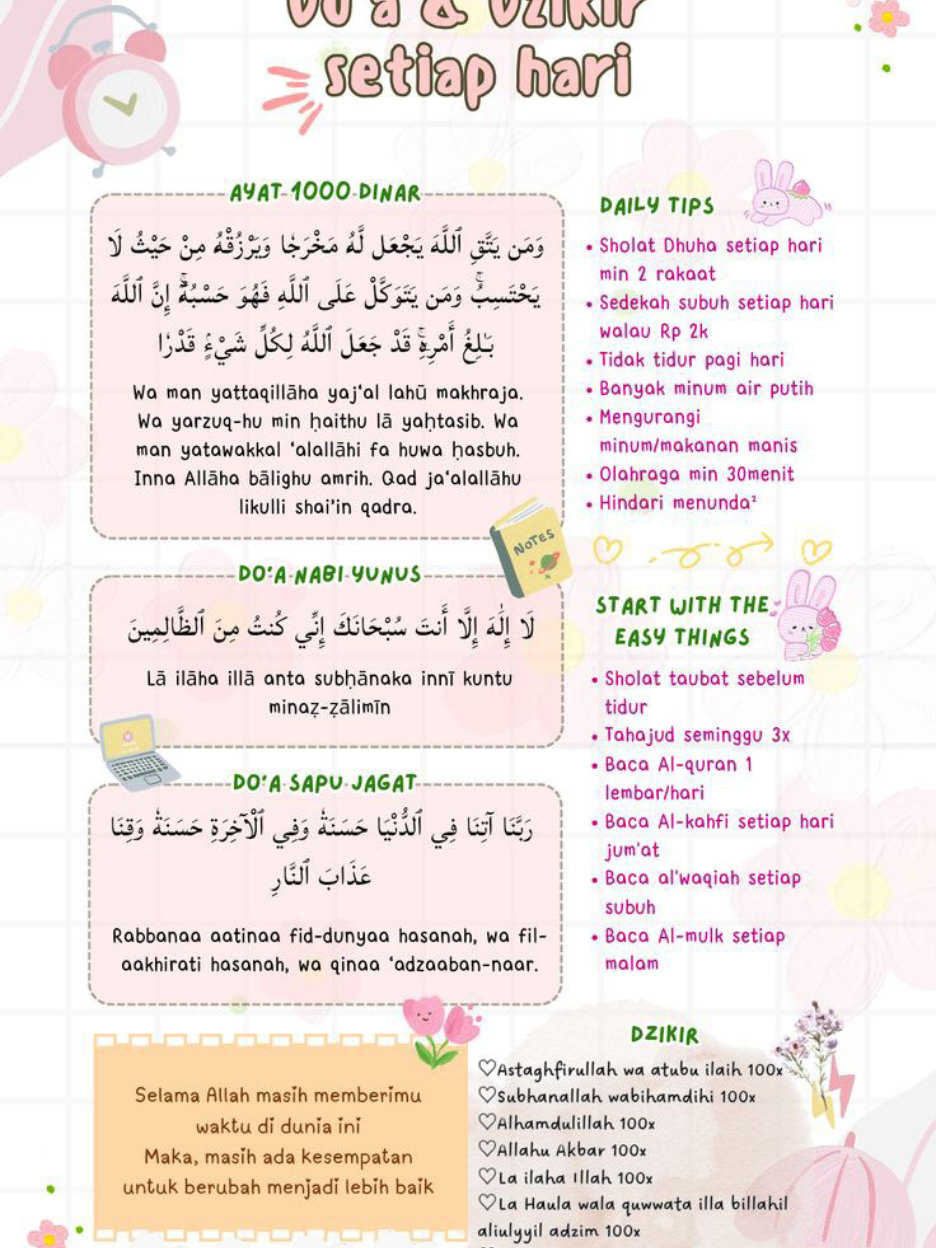 Do'a & Dzikir
setiap hari
AYAT 1000 DINAR
وَمَن يَتَّقِ ٱللَّهَ يَجْعَل لَّهُ مَخْرَجًا وَيَرْزُقْهُ مِنْ حَيْثُ لَا
يَحْتَسِبُ ۚ وَمَن يَتَوَكَّلْ عَلَى ٱللَّهِ فَهُوَ حَسْبُهُ ۚ إِنَّ ٱللَّهَ
بَـٰلِغُ أَمْرِهِ ۚ قَدْ جَعَلَ ٱللَّهُ لِكُلِّ شَيْءٍ قَدْرًا
Wa man yattaqillāha yaj'al lahū makhraja.
Wa yarzuq-hu min ḥaithu lā yaḥtasib. Wa
man yatawakkal 'alallāhi fa huwa ḥasbuh.
Inna Allāha bālighu amrih. Qad ja'alallāhu
likulli shai'in qadra.
NOTES
DO'A NABI YUNUS
لَا إِلَٰهَ إِلَّا أَنتَ سُبْحَانَكَ إِنِّي كُنتُ مِنَ ٱلظَّالِمِينَ
Lā ilāha illā anta subḥānaka innī kuntu
minaẓ-ẓālimīn
DO'A SAPU JAGAT
رَبَّنَا آتِنَا فِي ٱلدُّنْيَا حَسَنَةً وَفِي ٱلْآخِرَةِ حَسَنَةً وَقِنَا
عَذَابَ ٱلنَّارِ
Rabbanaa aatinaa fid-dunyaa hasanah, wa fil-
aakhirati hasanah, wa qinaa 'adzaaban-naar.
Selama Allah masih memberimu
waktu di dunia ini
Maka, masih ada kesempatan
untuk berubah menjadi lebih baik
DAILY TIPS
• Sholat Dhuha setiap hari
min 2 rakaat
• Sedekah subuh setiap hari
walau Rp 2k
• Tidak tidur pagi hari
• Banyak minum air putih
• Mengurangi
minum/makanan manis
• Olahraga min 30menit
• Hindari menunda²
START WITH THE
EASY THINGS
• Sholat taubat sebelum
tidur
• Tahajud seminggu 3x
• Baca Al-quran 1
lembar/hari
• Baca Al-kahfi setiap hari
jum'at
• Baca al'waqiah setiap
subuh
• Baca Al-mulk setiap
malam
DZIKIR
♡Astaghfirullah wa atubu ilaih 100x
♡Subhanallah wabihamdihi 100x
♡Alhamdulillah 100x
♡Allahu Akbar 100x
♡La ilaha Illah 100x
♡La Haula wala quwwata illa billahil
aliulyyil adzim 100x